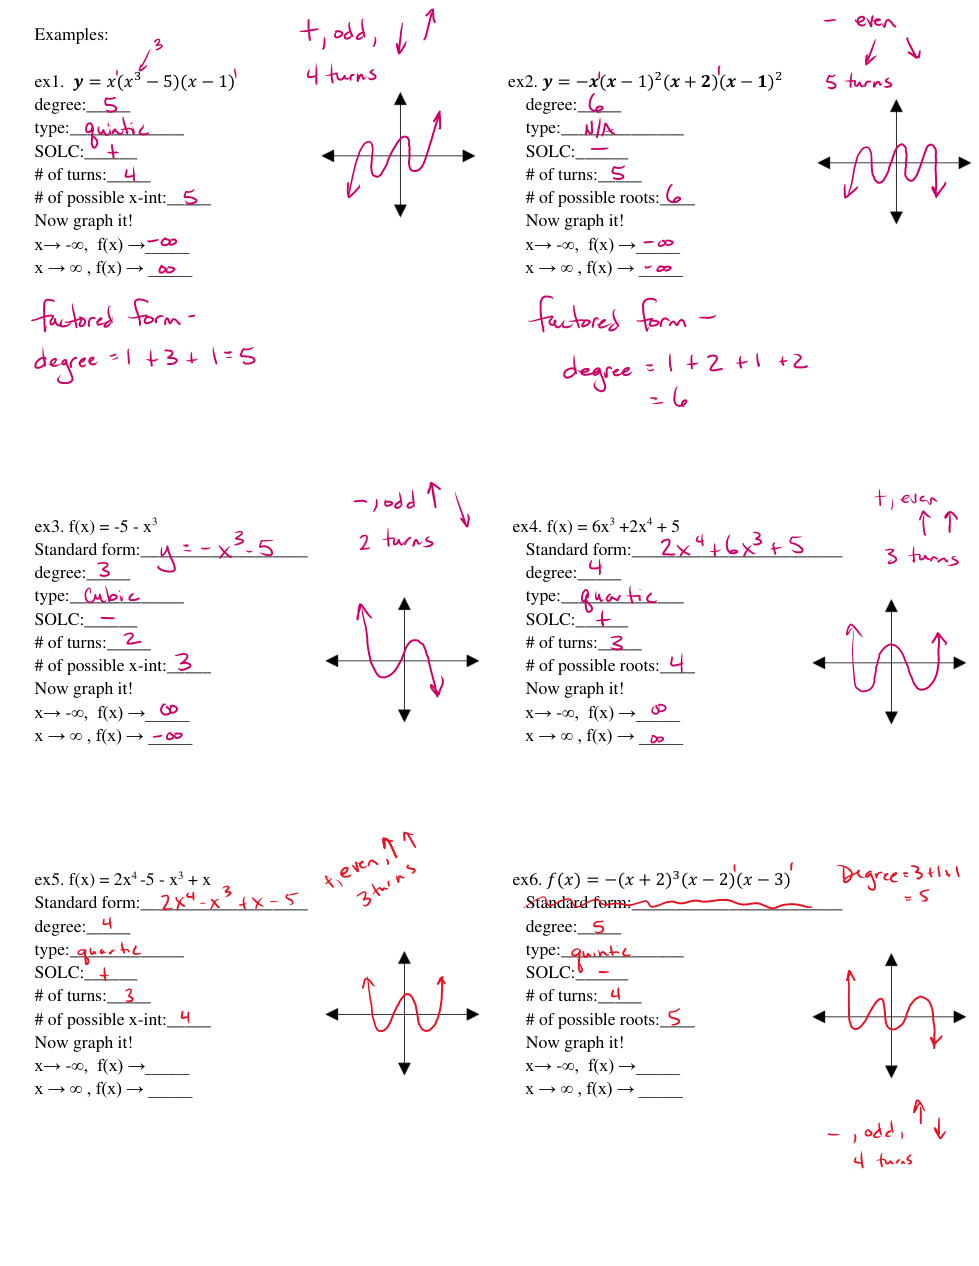 Examples:
+, odd, ↓ ↑
4 turns
3
ex1. y = x¹(x³ − 5)(x − 1)¹
degree: 5
type: quintic
SOLC: +
# of turns: 4
# of possible x-int: 5
Now graph it!
x→ -∞, f(x) → -∞
x → ∞ , f(x) → ∞
factored form -
degree = 1 + 3 + 1 = 5
− even
↙ ↘
5 turns
ex2. y = −x¹(x − 1)²(x + 2)¹(x − 1)²
degree: 6
type: N/A
SOLC: −
# of turns: 5
# of possible roots: 6
Now graph it!
x→ -∞, f(x) → -∞
x → ∞ , f(x) → -∞
factored form -
degree = 1 + 2 + 1 + 2
= 6
−, odd ↑ ↓
2 turns
ex3. f(x) = -5 - x³
Standard form: y = -x³ - 5
degree: 3
type: Cubic
SOLC: −
# of turns: 2
# of possible x-int: 3
Now graph it!
x→ -∞, f(x) → ∞
x → ∞ , f(x) → -∞
+, even
↑ ↑
3 turns
ex4. f(x) = 6x³ +2x⁴ + 5
Standard form: 2x⁴ + 6x³ + 5
degree: 4
type: quartic
SOLC: +
# of turns: 3
# of possible roots: 4
Now graph it!
x→ -∞, f(x) → ∞
x → ∞ , f(x) → ∞
+, even, ↑ ↑
3 turns
ex5. f(x) = 2x⁴ -5 - x³ + x
Standard form: 2x⁴ - x³ + x - 5
degree: 4
type: quartic
SOLC: +
# of turns: 3
# of possible x-int: 4
Now graph it!
x→ -∞, f(x) →
x → ∞ , f(x) →
Degree = 3+1+1
= 5
ex6. f(x) = −(x + 2)³(x − 2)¹(x − 3)¹
Standard form:
degree: 5
type: quintic
SOLC: −
# of turns: 4
# of possible roots: 5
Now graph it!
x→ -∞, f(x) →
x → ∞ , f(x) →
−, odd, ↑ ↓
4 turns